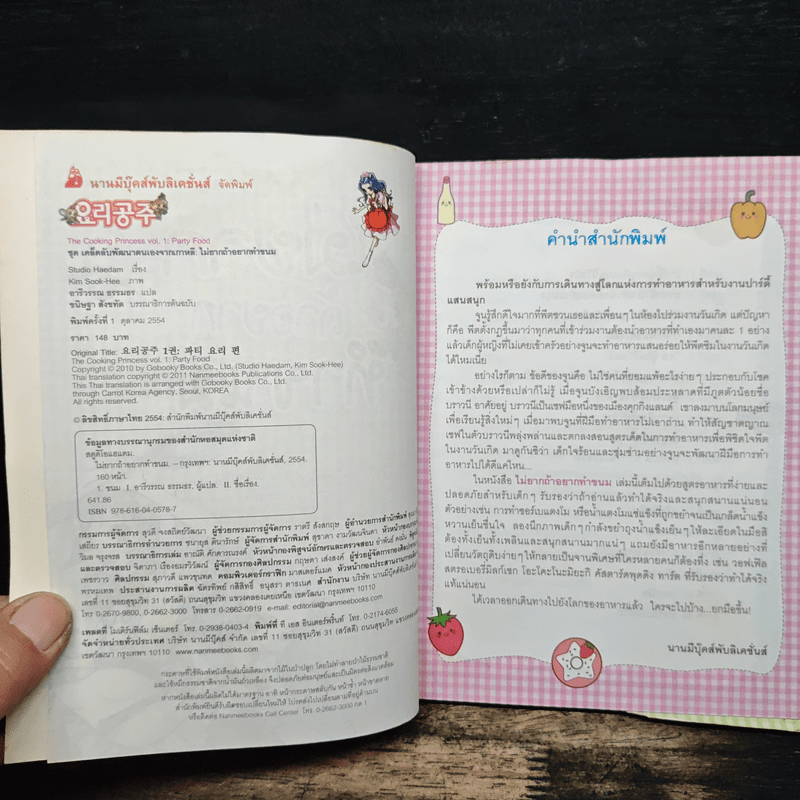 นานมีบุ๊คส์พับลิเคชั่นส์ จัดพิมพ์
요리공주
The Cooking Princess vol. 1: Party Food
ชุด เคล็ดลับพัฒนาตนเองจากเกาหลี: ไม่ยากถ้าอยากทำขนม
Studio Haedam เรื่อง
Kim Sook-Hee ภาพ
อาริวรรณ ธรรมธร แปล
ชนิษฐา สังขทัต บรรณาธิการต้นฉบับ
พิมพ์ครั้งที่ 1 ตุลาคม 2554
ราคา 148 บาท
Original Title: 요리공주 1권: 파티 요리 편
The Cooking Princess vol. 1: Party Food
Copyright © 2010 by Gobooky Books Co., Ltd. (Studio Haedam, Kim Sook-Hee)
Thai translation copyright © 2011 Nanmeebooks Publications Co., Ltd.
This Thai translation is arranged with Gobooky Books Co., Ltd.
through Carrot Korea Agency, Seoul, KOREA
All rights reserved.
© ลิขสิทธิ์ภาษาไทย 2554: สำนักพิมพ์นานมีบุ๊คส์พับลิเคชั่นส์
ข้อมูลทางบรรณานุกรมของสำนักหอสมุดแห่งชาติ
สตูดิโอแฮดม.
ไม่ยากถ้าอยากทำขนม. -- กรุงเทพฯ: นานมีบุ๊คส์พับลิเคชั่นส์, 2554.
160 หน้า.
1. ขนม I. อาริวรรณ ธรรมธร, ผู้แปล. II. ชื่อเรื่อง.
641.86
ISBN 978-616-04-0578-7
กรรมการผู้จัดการ สุวดี จงสถิตย์วัฒนา ผู้ช่วยกรรมการผู้จัดการ ราตรี สังสกฤษ ผู้อำนวยการสำนักพิมพ์
เลขที่ 11 ซอยสุขุมวิท 31 (สวัสดี) ถนนสุขุมวิท แขวงคลองเตยเหนือ เขตวัฒนา กรุงเทพฯ 10110
โทร 0-2670-9800, 0-2662-3000 โทรสาร 0-2662-0919 e-mail: editorial@nanmeebooks.com
เพลตที่ โมเดิร์นฟิล์ม เซ็นเตอร์ โทร. 0-2938-0403-4 พิมพ์ที่ ที เอส อินเตอร์พริ้นท์ โทร. 0-2174-6055
จัดจำหน่ายทั่วประเทศ บริษัท นานมีบุ๊คส์ จำกัด เลขที่ 11 ซอยสุขุมวิท 31 (สวัสดี) ถนนสุขุมวิท
เขตวัฒนา กรุงเทพฯ 10110 www.nanmeebooks.com
กระดาษที่ใช้พิมพ์หนังสือเล่มนี้ผลิตมาจากไม้ในป่าปลูก โดยไม่ทำลายป่าไม้ธรรมชาติ
และใช้หมึกธรรมชาติจากน้ำมันถั่วเหลือง จึงปลอดภัยต่อมนุษย์และเป็นมิตรต่อสิ่งแวดล้อม
หากหนังสือเล่มนี้ผลิตไม่ได้มาตรฐาน อาทิ หน้ากระดาษสลับกัน หน้าซ้ำ หน้าขาดหาย
สำนักพิมพ์ยินดีรับผิดชอบเปลี่ยนใหม่ให้ โปรดส่งไปเปลี่ยนตามที่อยู่ด้านบน
หรือติดต่อ Nanmeebooks Call Center โทร. 0-2662-3000 กด 1
คำนำสำนักพิมพ์
พร้อมหรือยังกับการเดินทางสู่โลกแห่งการทำอาหารสำหรับงานปาร์ตี้
แสนสนุก
จูนรู้สึกดีใจมากที่พีตชวนเธอและเพื่อนๆ ในห้องไปร่วมงานวันเกิด แต่ปัญหา
ก็คือ พีตตั้งกฎขึ้นมาว่าทุกคนที่เข้าร่วมงานต้องนำอาหารที่ทำเองมาคนละ 1 อย่าง
แล้วเด็กผู้หญิงที่ไม่เคยเข้าครัวอย่างจูนจะทำอาหารแสนอร่อยให้พีตชิมในงานวันเกิด
ได้ไหมเนี่ย
อย่างไรก็ตาม ข้อดีของจูนคือ ไม่ใช่คนที่ยอมแพ้อะไรง่ายๆ ประกอบกับโชค
เข้าข้างด้วยหรือเปล่าก็ไม่รู้ เมื่อจูนบังเอิญพบส้อมประหลาดที่มีภูตตัวน้อยชื่อ
บราวนี่ อาศัยอยู่ บราวนี่เป็นเชฟมือหนึ่งของเมืองคุกกิงแลนด์ เขาลงมาบนโลกมนุษย์
เพื่อเรียนรู้สิ่งใหม่ๆ เมื่อมาพบจูนที่ฝีมือทำอาหารไม่เอาถ่าน ทำให้สัญชาตญาณ
เชฟในตัวบราวนี่พลุ่งพล่านและตกลงสอนสูตรเด็ดในการทำอาหารเพื่อพิชิตใจพีต
ในงานวันเกิด มาดูกันซิว่า เด็กใจร้อนและซุ่มซ่ามอย่างจูนจะพัฒนาฝีมือการทำ
อาหารไปได้ดีแค่ไหน...
ในหนังสือ ไม่ยากถ้าอยากทำขนม เล่มนี้เต็มไปด้วยสูตรอาหารที่ง่ายและ
ปลอดภัยสำหรับเด็กๆ รับรองว่าถ้าอ่านแล้วทำได้จริงและสนุกสนานแน่นอน
ตัวอย่างเช่น การทำซอร์เบแตงโม หรือน้ำแตงโมแช่แข็งที่ถูกขยำจนเป็นเกล็ดน้ำแข็ง
หวานเย็นชื่นใจ ลองนึกภาพเด็กๆ กำลังขยำถุงน้ำแข็งเย็นๆ ให้ละเอียดในมือสิ
ต้องทั้งเย็นทั้งเพลินและสนุกสนานมากแน่ๆ แถมยังมีอาหารอีกหลายอย่างที่
เปลี่ยนวัตถุดิบง่ายๆ ให้กลายเป็นจานพิเศษที่ใครหลายคนก็ต้องทึ่ง เช่น วอฟเฟิล
สตรอเบอร์รีมิลก์เชก โอะโคะโนะมิยะกิ คัสตาร์ดพุดดิง ทาร์ต ที่รับรองว่าทำได้จริง
แท้แน่นอน
ได้เวลาออกเดินทางไปยังโลกของอาหารแล้ว ใครจะไปบ้าง...ยกมือขึ้น!
นานมีบุ๊คส์พับลิเคชั่นส์